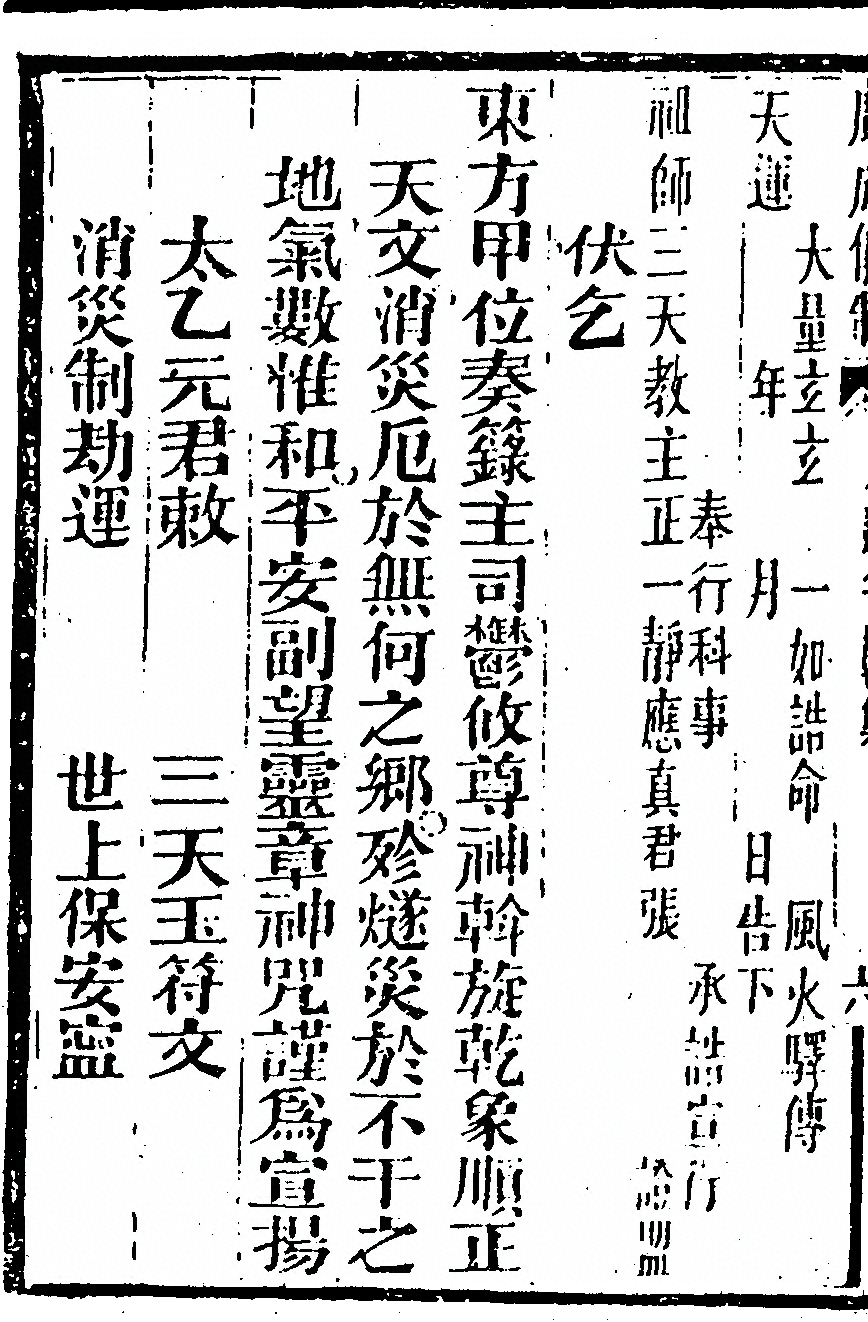 大量立立　一如誥命　風火驛傳
天運　年　月　日告下
奉行科事　承誥宣行
祖師三天教主正一靜應真君張　證明
伏乞
東方甲位奏籙主司鬱攸尊神斡旋乾象順正
天文消災厄於無何之鄉殄燧災於不干之
地氣數惟和平安副望靈章神咒謹爲宣揚
太乙元君敕　三天玉符文
消災制劫運　世上保安寍